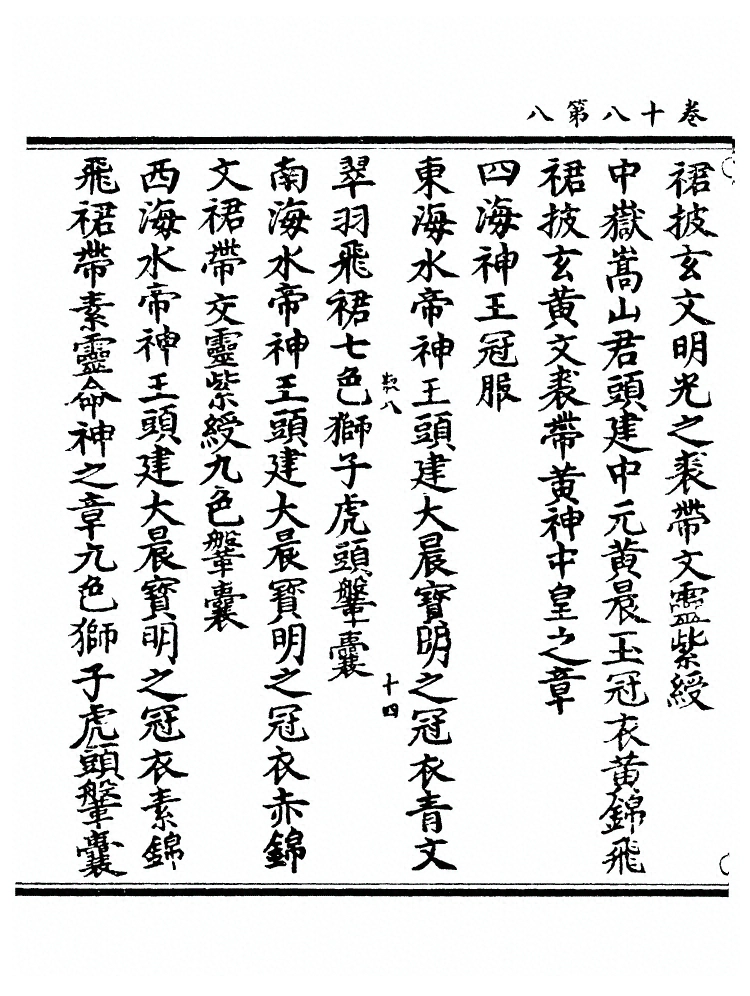 卷十八第八
裙披玄文明光之裘帶文靈紫綬
中嶽嵩山君頭建中元黃晨玉冠衣黃錦飛
裙披玄黃文裘帶黃神中皇之章
四海神王冠服
東海水帝神王頭建大晨寶明之冠衣青文
數八
十四
翠羽飛裙七色獅子虎頭鞶囊
南海水帝神王頭建大晨寶明之冠衣赤錦
文裙帶交靈紫綬九色鞶囊
西海水帝神王頭建大晨寶明之冠衣素錦
飛裙帶素靈命神之章九色獅子虎頭鞶囊